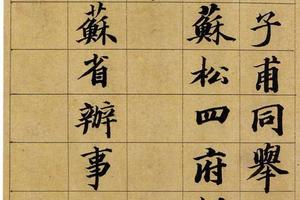 子甫同舉
蘇松四府
蘇省辦事